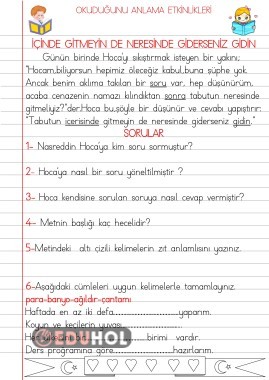 OKUDUĞUNU ANLAMA ETKİNLİKLERİ
İÇİNDE GİTMEYİN DE NERESİNDE GİDERSENİZ GİDİN
Günün birinde Hoca'yı sıkıştırmak isteyen bir yakını;
"Hocam,biliyorsun hepimiz öleceğiz kabul,buna şüphe yok.
Ancak benim aklıma takılan bir soru var, hep düşünürüm,
acaba cenazenin namazı kılındıktan sonra tabutun neresinde
gitmeliyiz?"der.Hoca bu,şöyle bir düşünür ve cevabı yapıştırır:
"Tabutun içerisinde gitmeyin de neresinde giderseniz gidin."
SORULAR
1- Nasreddin Hoca'ya kim soru sormuştur?
2- Hoca'ya nasıl bir soru yöneltilmiştir ?
3- Hoca kendisine sorulan soruya nasıl cevap vermiştir?
4- Metnin başlığı kaç hecelidir?
5-Metindeki altı çizili kelimelerin zıt anlamlısını yazınız.
6-Aşağıdaki cümleleri uygun kelimelerle tamamlayınız.
para-banyo-ağıldır-çantamı
Haftada en az iki defa..........................yaparım.
Koyun ve keçilerin yuvası..........................
birimi vardır.
Ders programına göre..........................hazırlarım.
EDUHOL